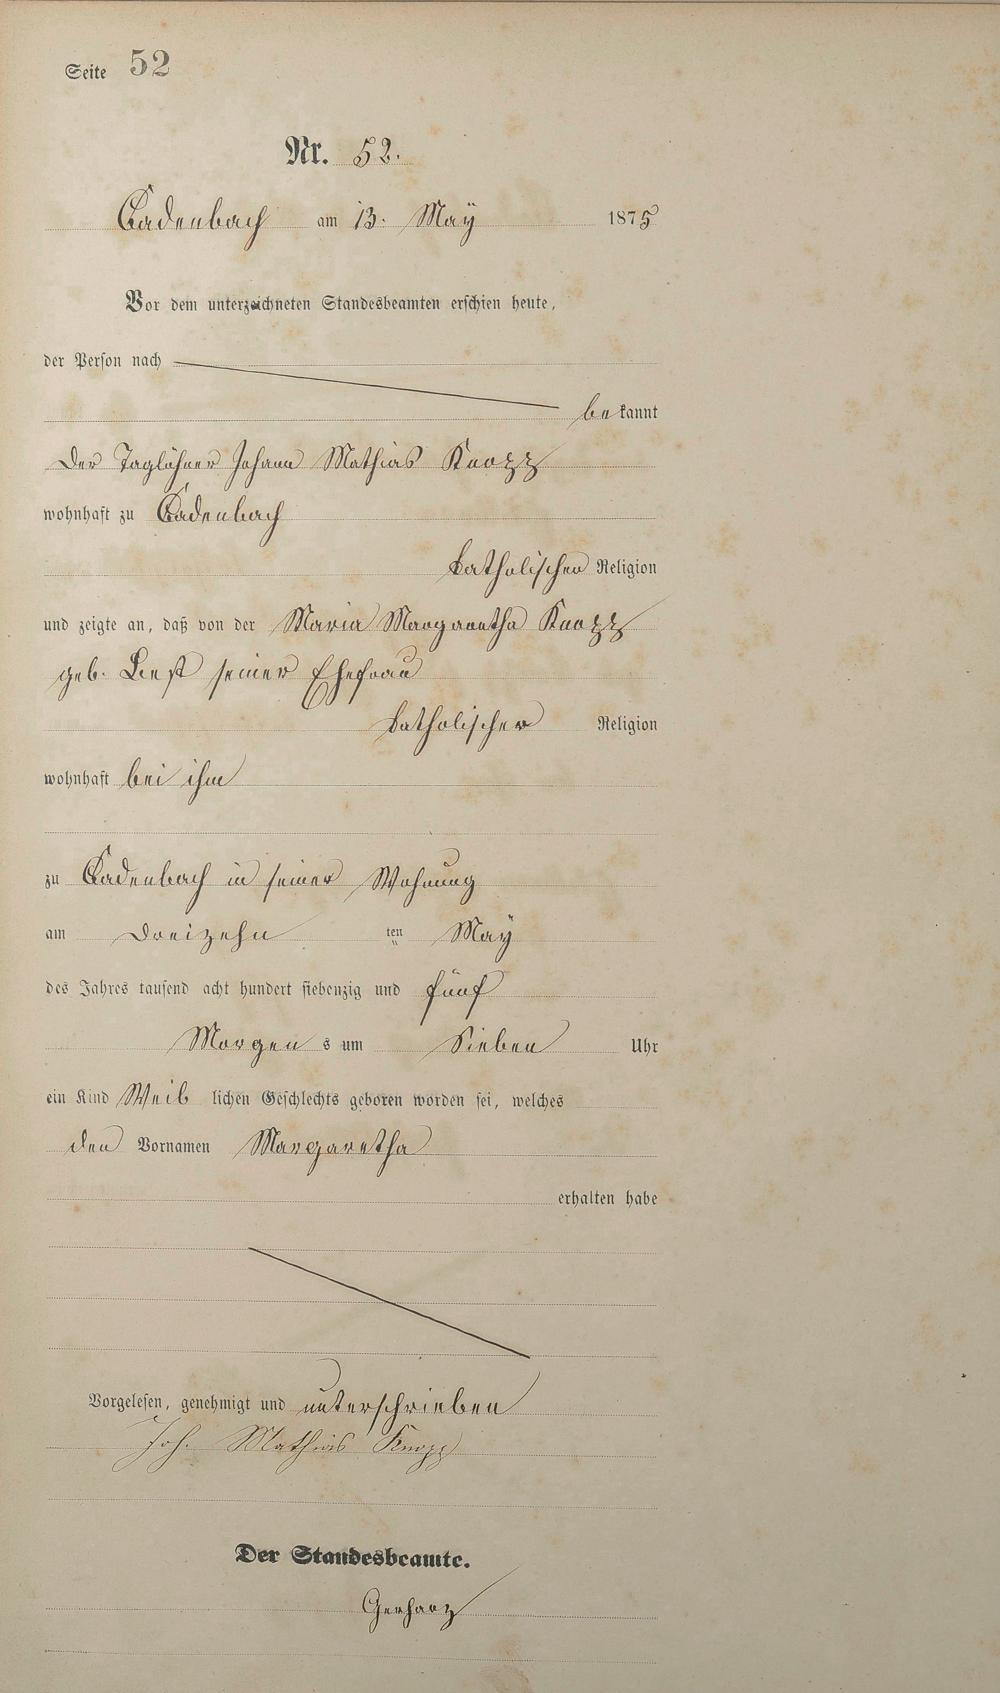 Seite 52
Nr. 52.
Cadenbach am 13. May 1875
Vor dem unterzeichneten Standesbeamten erschien heute,
der Person nach
bekannt
der Taglöhner Johann Mathias Knopp
wohnhaft zu Cadenbach
katholischer Religion
und zeigte an, daß von der Maria Margaretha Knopp
geb. Best seiner Ehefrau
katholischer Religion
wohnhaft bei ihm
zu Cadenbach in seiner Wohnung
am Dreizehn ten May
des Jahres tausend acht hundert siebenzig und fünf
Morgen s um Sieben Uhr
ein Kind Weib lichen Geschlechts geboren worden sei, welches
den Vornamen Margaretha
erhalten habe
Vorgelesen, genehmigt und unterschrieben
Joh. Mathias Knopp
Der Standesbeamte.
Gerharz